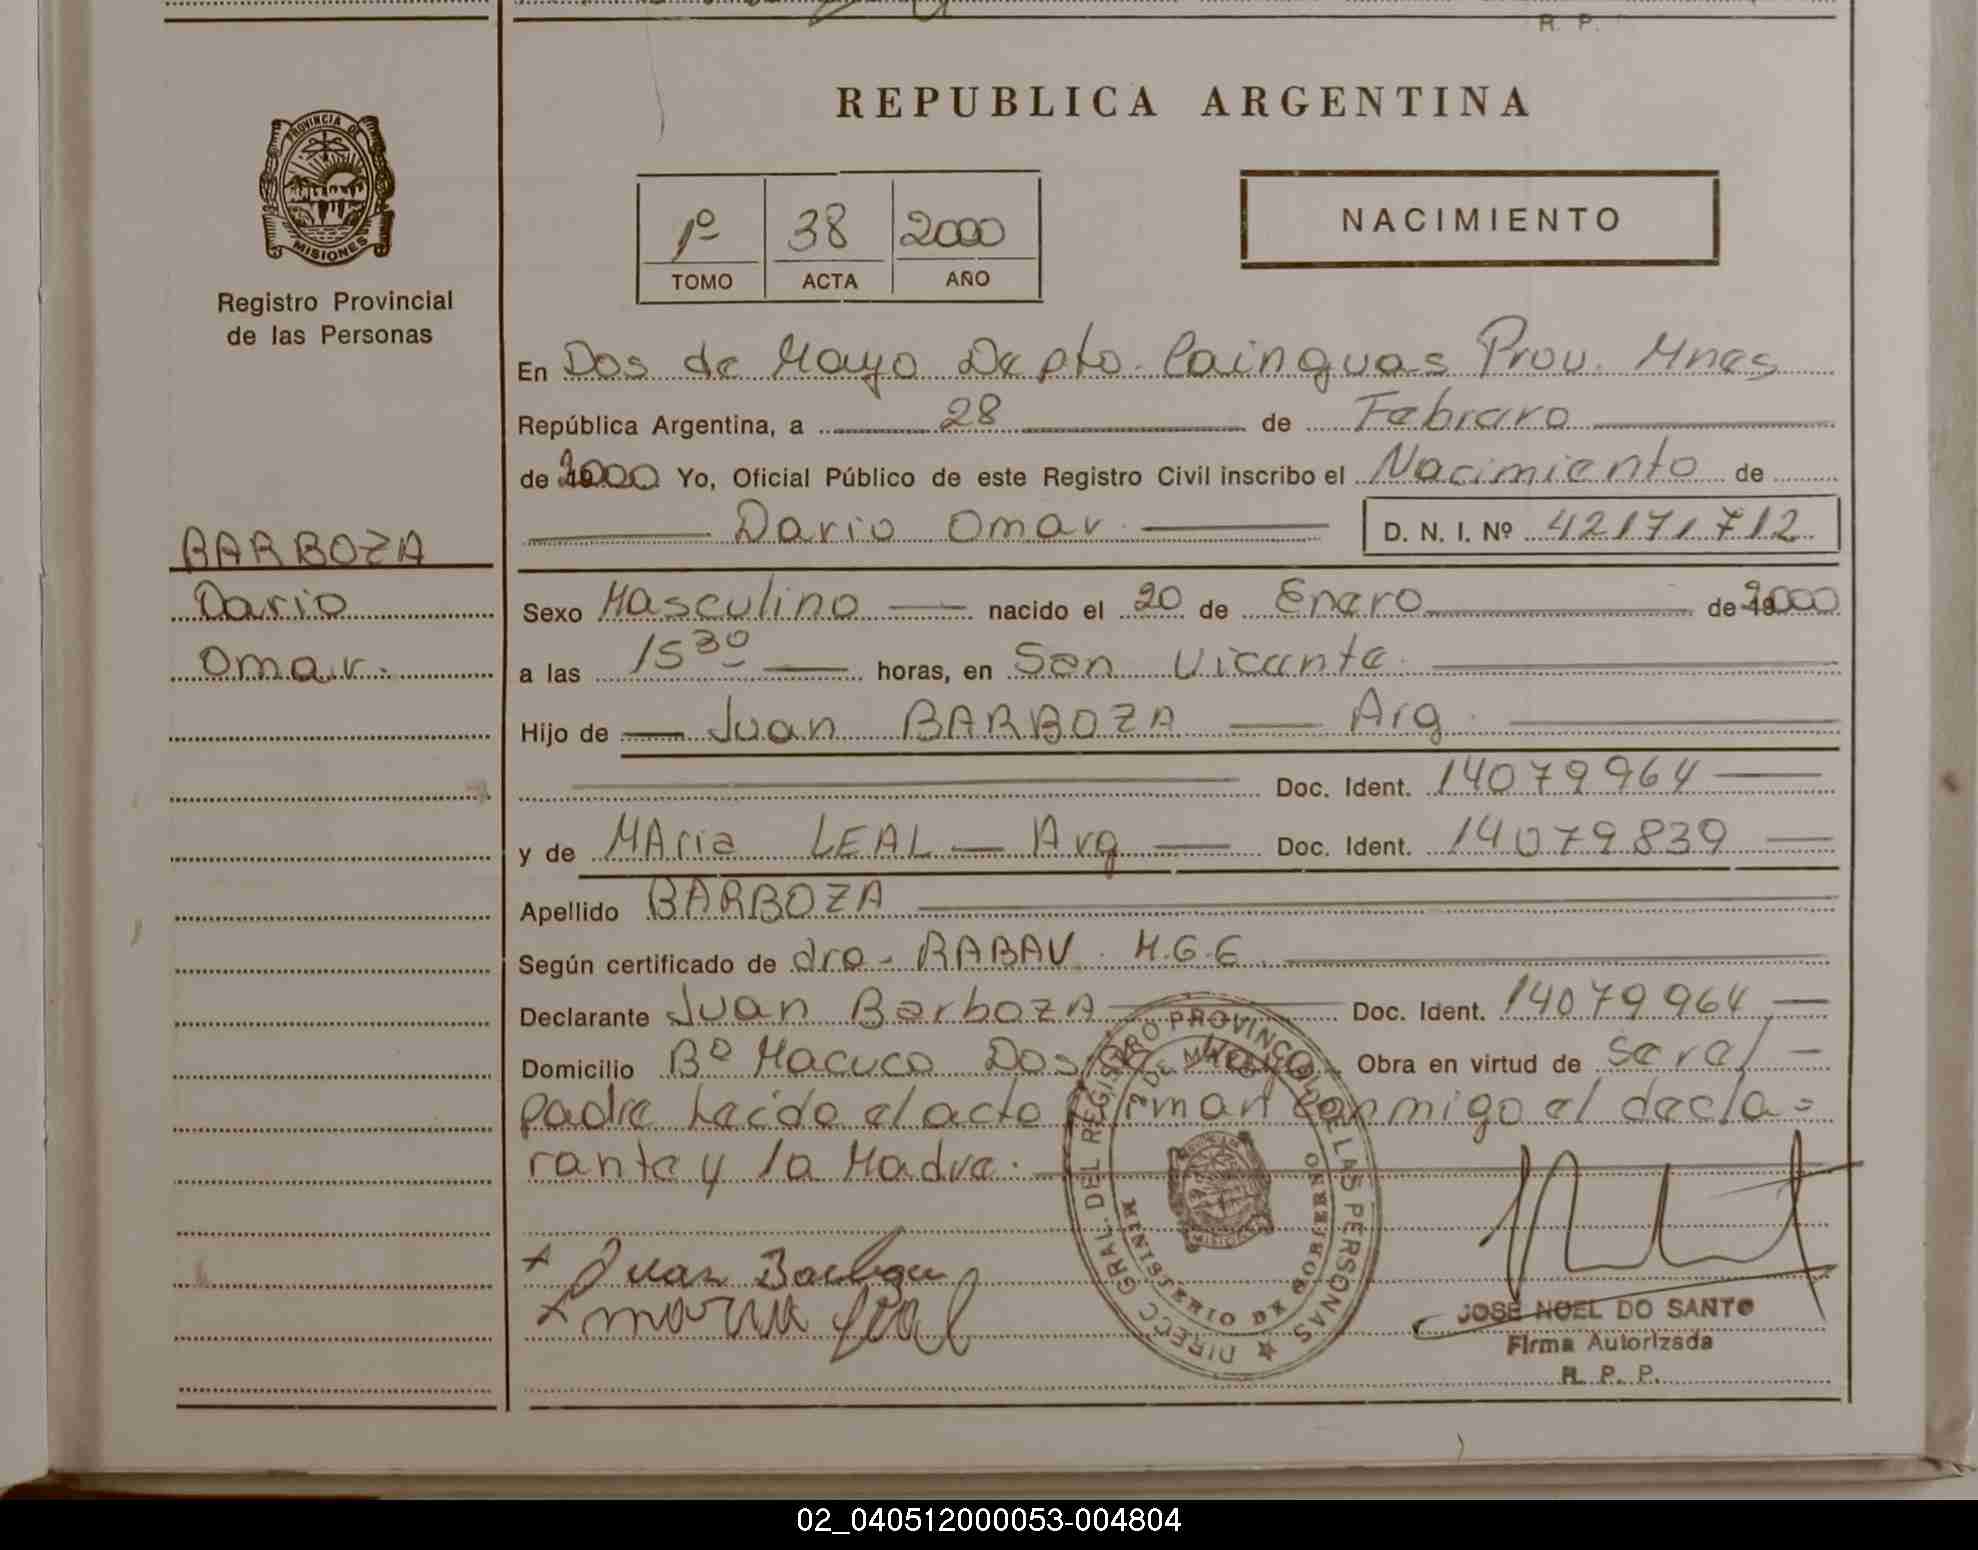 R. P.
PROVINCIA DE
MISIONES
Registro Provincial
de las Personas
REPUBLICA ARGENTINA
1º 38 2000
TOMO ACTA AÑO
NACIMIENTO
En Dos de Mayo Depto. Cainguas Prov. Mnes
República Argentina, a 28 de Febrero
de 2000 Yo, Oficial Público de este Registro Civil inscribo el Nacimiento de
Dario Omar D. N. I. Nº 42171712
BARBOZA
Dario
Omar.
Sexo Masculino nacido el 20 de Enero de 2000
a las 15 30 horas, en San Vicente.
Hijo de Juan BARBOZA Arg.
Doc. Ident. 14079964
y de MAria LEAL Arg Doc. Ident. 14079839
Apellido BARBOZA
Según certificado de dro. RABAV. H.G.E
Declarante Juan BarbozA Doc. Ident. 14079964
Domicilio Bº Macuco Dos de Mayo Obra en virtud de ser el
padre Leido el acto firman conmigo el decla=
rante y la Madre.
DIRECC GRAL. DEL REGISTRO PROVINCIAL DE LAS PERSONAS
2 DE MAYO
MISIONES
MINISTERIO DE GOBIERNO
+ Juan Barboza
+ maria leal
JOSE NOEL DO SANTO
Firma Autorizada
R. P. P.
02_040512000053-004804